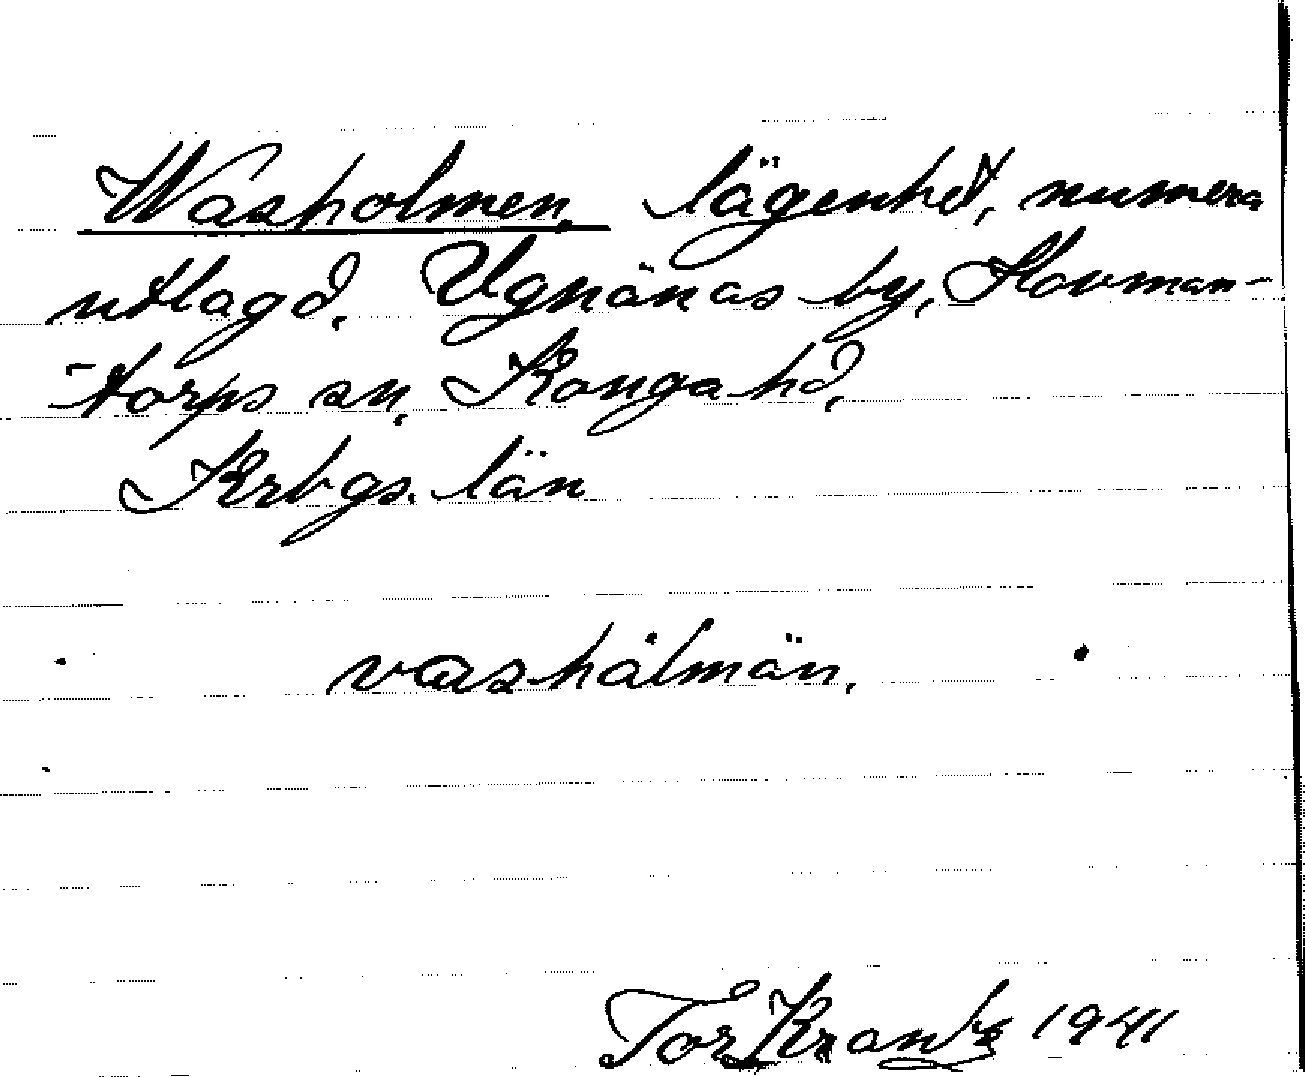 Washolmen, lägenhet, numera
utlagd. Ugnanäs by, Hovman-
torps sn, Konga hd,
Krbgs. län
vashålmän,
Tor Krantz 1941